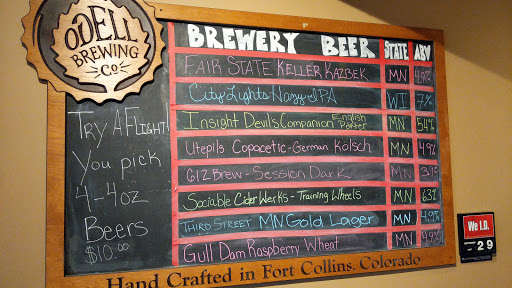 ODELL
BREWING
CO
Try A Flight!
You pick
4-4oz
Beers
$10.00
BREWERY BEER STATE ABV
FAIR STATE KELLER KAZBEK MN
City Lights Hazy IPA WI 7%
Insight Devils Companion English Porter MN 5.4%
Utepils Copacetic-German Kölsch MN 4.9%
612 Brew - Session Dark MN
Sociable Cider Werks - Training Wheels MN 6.3%
THIRD STREET MN Gold Lager MN 4.9%
Gull Dam Raspberry Wheat MN 4.9%
Hand Crafted in Fort Collins, Colorado
We I.D.
-29